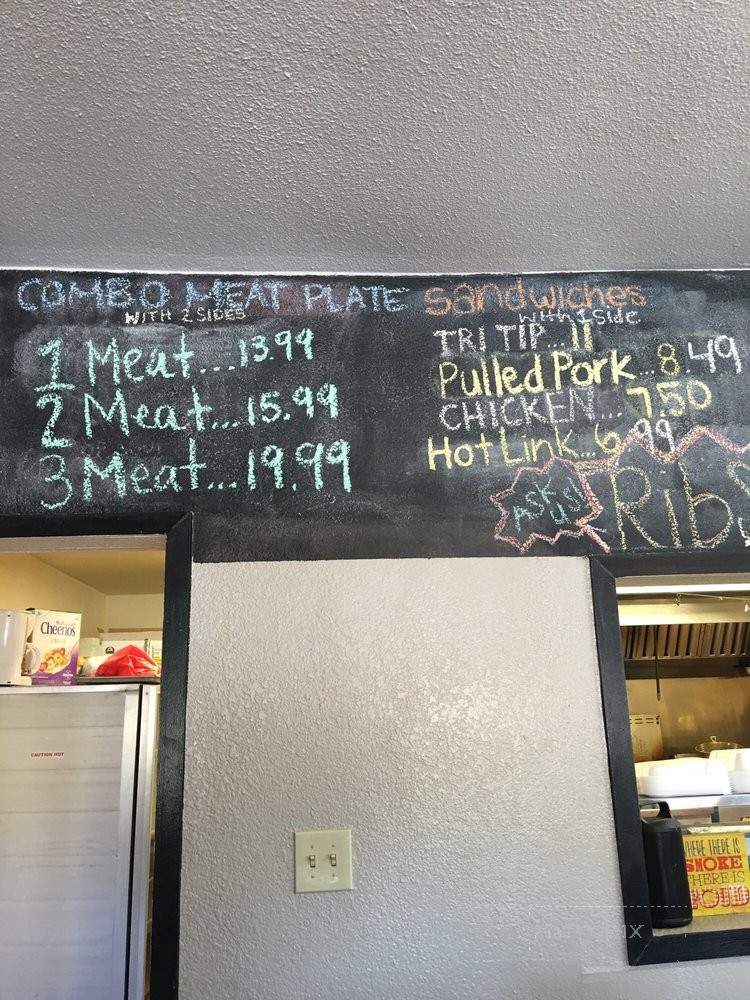 COMBO MEAT PLATE
WITH 2 SIDES
1 Meat...13.99
2 Meat...15.99
3 Meat...19.99
Sandwiches
with 1 Side
TRI TIP...11
Pulled Pork...8.49
CHICKEN...7.50
Hot Link...6.99
ASK US!
Ribs
Cheerios
CAUTION HOT
WHERE THERE IS
SMOKE
THERE IS